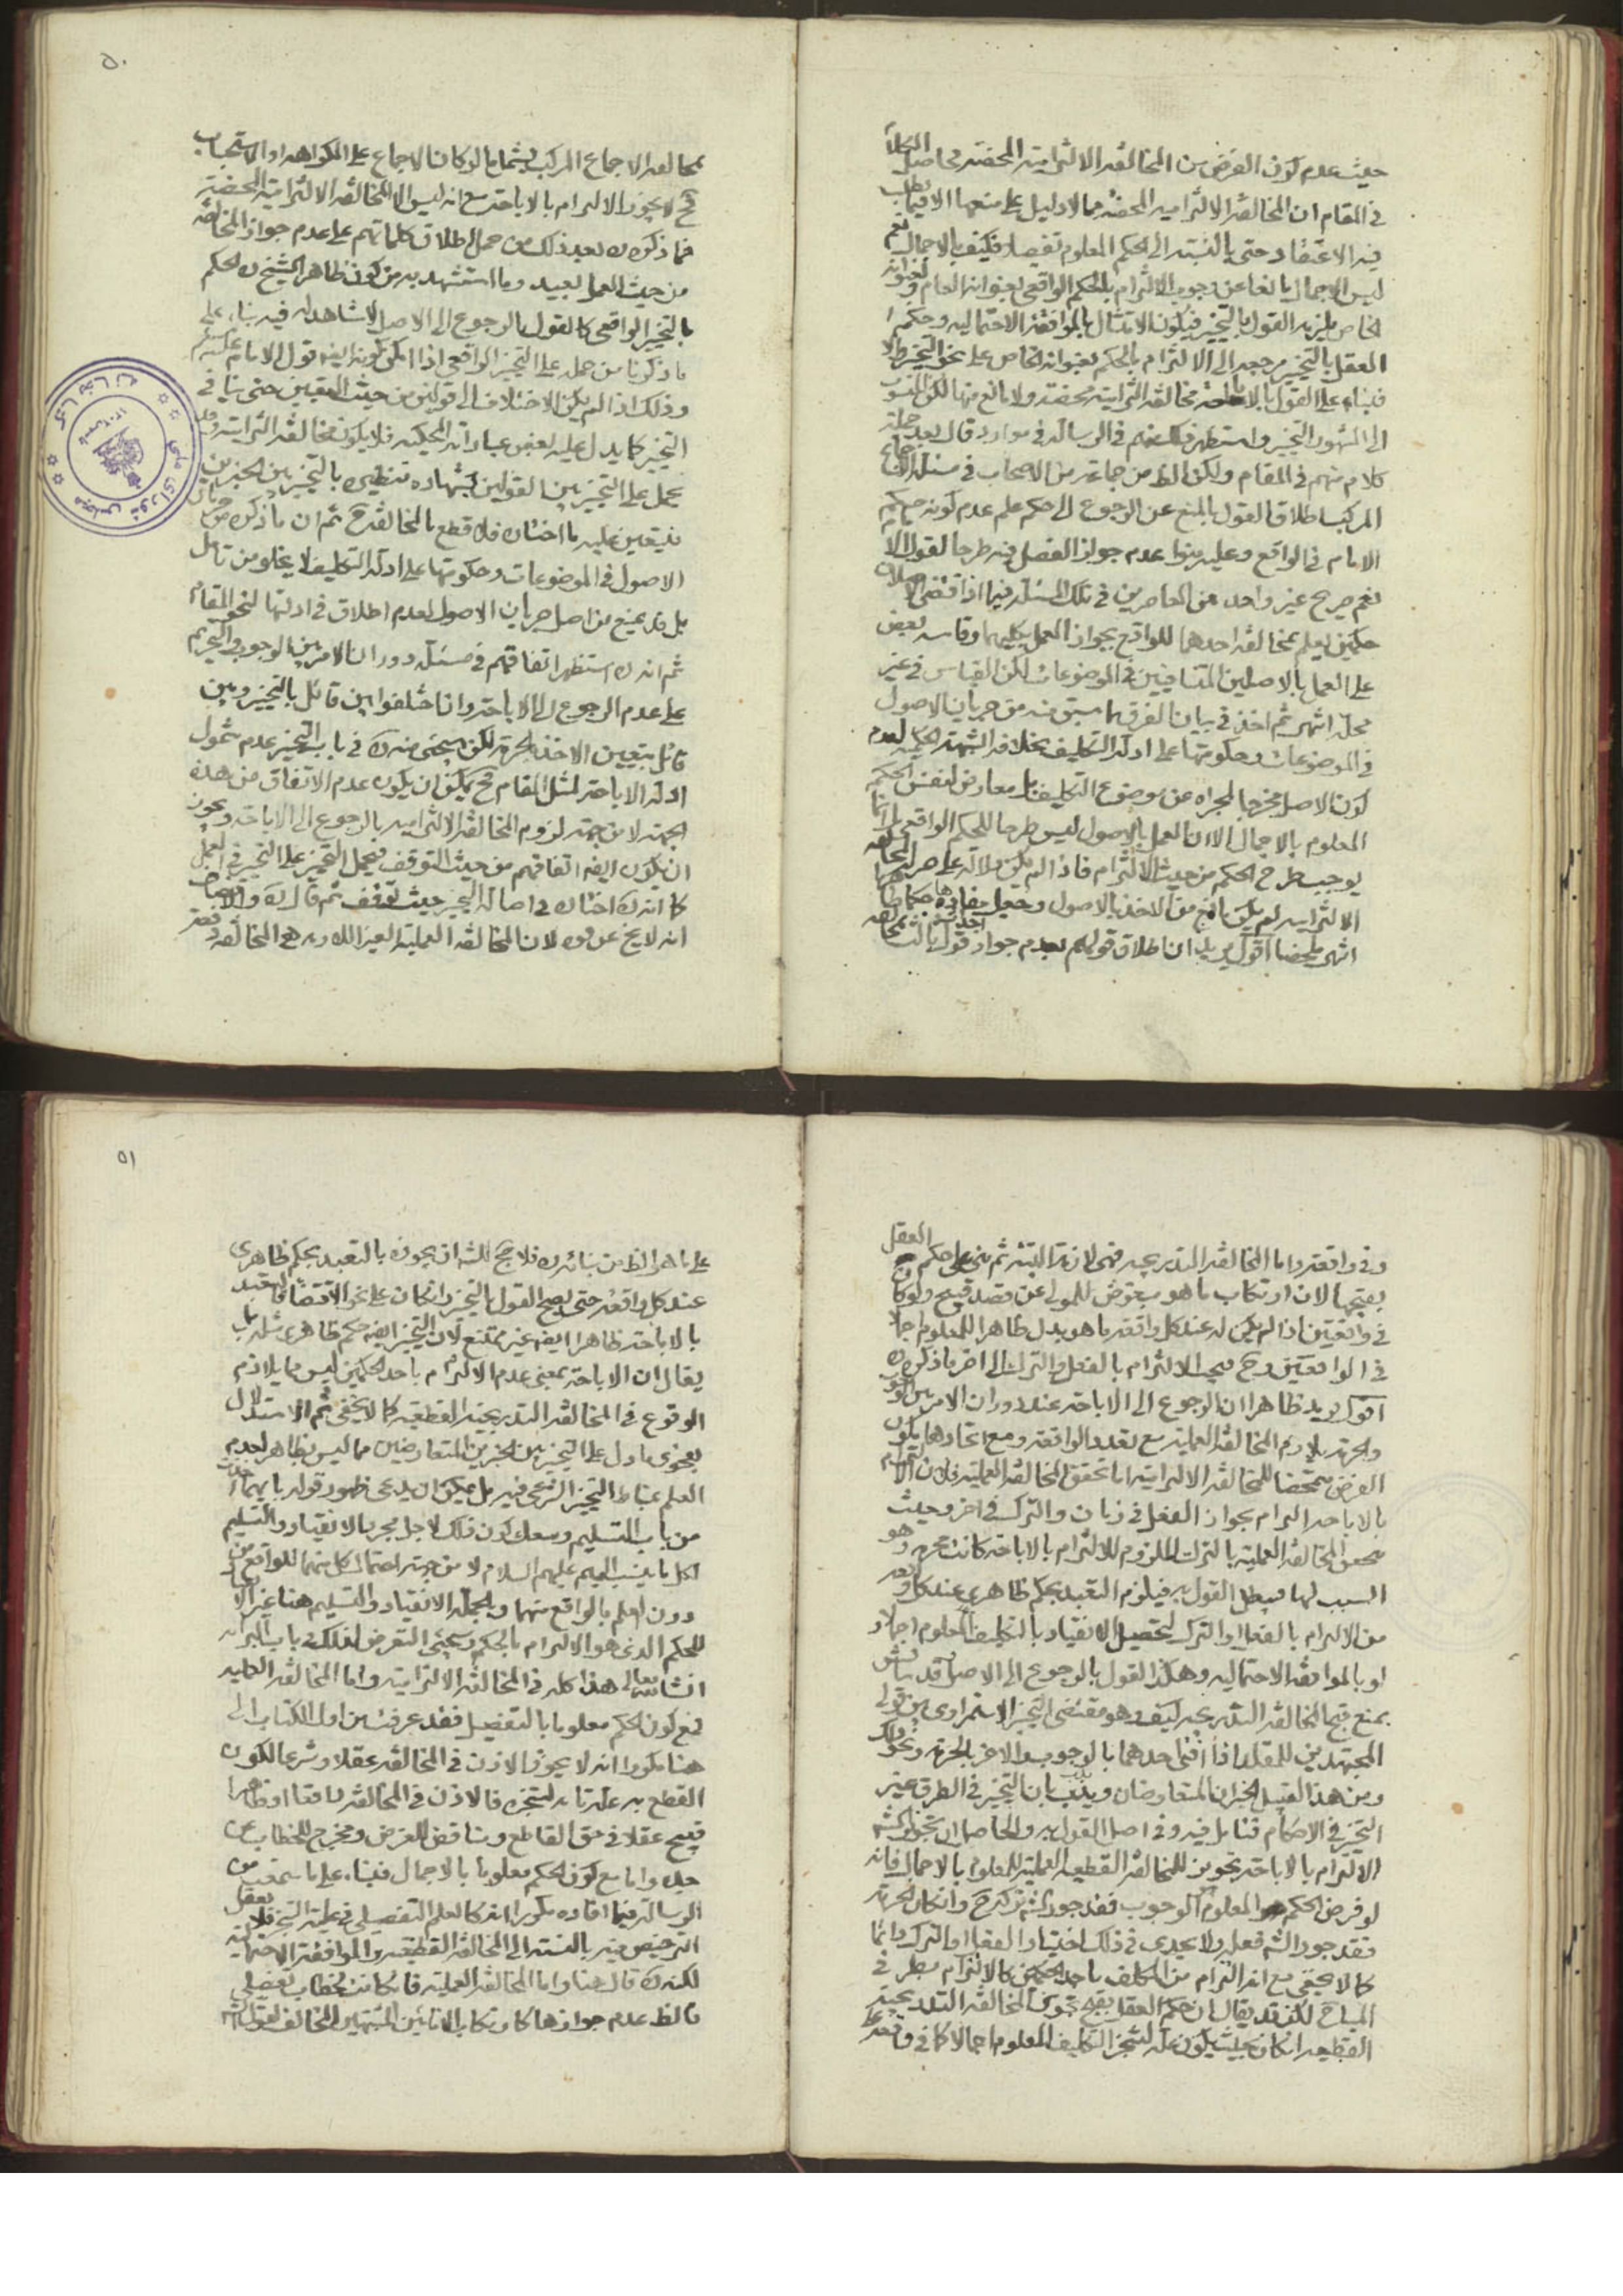 حيث عدم كون الفرض من المخالفة الالتزامية المحضة محاصل الكلام
في المقام ان المخالفة الالتزامية المحضة مما لا دليل على منعها الا فيما يطلب
فيه الاعتقاد حتى بالنسبة الى الحكم المعلوم تفصيلا فكيف بالاجمال نعم
ليس الاجمال مانعا عن وجوب الالتزام بالحكم الواقعي بعنوانه العام وبعنوانه
الخاص يلزمه القول بالتخيير فيكون الامتثال بالموافقة الاحتمالية وحكم
العقل بالتخيير مرجعه الى الالتزام بالحكم بعنوانه الخاص على نحو التخيير
فبناء على القول بالاباحة مخالفة التزامية محضة ولا مانع منها لكن المنسوب
الى المشهور التخيير واستظهر في الرسالة في موارد قال بعد جملة
كلام منهم في المقام ولكن الظ من جماعة من الاصحاب في مسئلة الاجماع
المركب اطلاق القول بالمنع عن الرجوع الى حكم علم عدم كونه حكم
الامام في الواقع وعليه بنوا عدم جواز الفصل فيه طرحا لقول الامام
نعم صرح غير واحد من المعاصرين في تلك المسئلة فيما اذا اقتضى الاصلان
حكمين يعلم بمخالفة احدهما للواقع بجواز العمل بكليهما وقاسه بعض
على العمل بالاصلين المتنافيين في الموضوعات لكن القياس في غير
محله انتهى ثم اخذ في بيان الفرق بما سبق منه من جريان الاصول
في الموضوعات وحكومتها على ادلة التكليف بخلاف الشبهة الحكمية لعدم
كون الاصل مخرجا لمجراه عن موضوع التكليف بل معارض لنفس الحكم
المعلوم بالاجمال الا ان العمل بالاصول ليس طرحا للحكم الواقعي بل انما
يوجب طرح الحكم من حيث الالتزام فاذا لم يكن دلالة على حرمة المخالفة
الالتزامية لم يكن مانع من الاخذ بالاصول وجعل مفادها احكاما ظاهرا
انتهى ملخصا اقول يريد ان اطلاق قولهم بعدم جواز احداث قول ثالث بمخالفة
٥٠
بمخالفة الاجماع المركب يشمل ما لو كان الاجماع على الكراهة او الاستحباب
فح لا يجوز الالتزام بالاباحة مع انه ليس الا المخالفة الالتزامية المحضة
فما ذكره ره بعد ذلك من حمل اطلاق كلماتهم على عدم جواز المخالفة
من حيث العمل بعيد وما استشهد به من كون ظاهر الشيخ ره الحكم
بالتخيير الواقعي كالقول بالرجوع الى الاصل لا شاهد له فيه بناء على
ما ذكرنا من حمله على التخيير الواقعي اذا امكن كونه ايضا قول الامام عليه السلم
وذلك اذا لم يكن الاختلاف الى قولين من حيث التعيين حتى ينافي
التخيير كما يدل عليه بعض عباراته المحكية فلا يكون مخالفة التزامية وقد
يحمل على التخيير بين القولين بشهادة تنظيره بالتخيير بين الخبرين
فيتعين عليه ما اختاره فلا قطع بالمخالفة ح ثم ان ما ذكره من جريان
الاصول في الموضوعات وحكومتها على ادلة التكليف لا يخلو من تامل
بل قد يمنع من اصل جريان الاصول لعدم اطلاق في ادلتها لنحو المقام
ثم انه ره استظهر اتفاقهم في مسئلة دوران الامر بين الوجوب والتحريم
على عدم الرجوع الى الاباحة وانما اختلفوا بين قائل بالتخيير وبين
قائل بتعيين الاخذ بالحرمة لكن سيجئ منه ره في باب التخيير عدم شمول
ادلة الاباحة لمثل المقام فح يمكن ان يكون عدم الاتفاق من هذه
الجهة لا من جهة لزوم المخالفة الالتزامية بالرجوع الى الاباحة ويجوز
ان يكون ايضا اتفاقهم من حيث التوقف فيحمل التخيير على التخيير في العمل
كما انه ره اختاره في اصالة التخيير حيث توقف ثم قال ره والانصاف
انه لا يخ عن قوة لان المخالفة العملية الغير اللازمة هي المخالفة دفعة
وفي واقعة واما المخالفة التدريجية فهي لازمة البتة ثم بنى على حكم العقل
بقبحها لان ارتكاب ما هو مبغوض للمولى عن قصد قبيح ولو كان
في واقعتين اذا لم يكن له عند كل واقعة ما هو بدل ظاهرا للمعلوم اجمالا
في الواقعتين وح فيجب الالتزام بالفعل او الترك الى اخر ما ذكره ره
اقول يريد ظاهرا ان الرجوع الى الاباحة عند دوران الامر بين الوجوب
والحرمة يلازم المخالفة العملية مع تعدد الواقعة ومع اتحادها يكون
الفرض متمحضا للمخالفة الالتزامية اما تحقق المخالفة العملية فلان الالتزام
بالاباحة التزام بجواز الفعل في زمان والترك في اخر وحيث
تتحقق المخالفة العملية بالترك الملزوم للالتزام بالاباحة كانت محرمة وهو
السبب لها فيبطل القول به فيلزم التعبد بحكم ظاهري عند كل واقعة
من الالتزام بالفعل او الترك لتحصيل الانقياد بالتكليف المعلوم اجمالا
او بالموافقة الاحتمالية وهكذا القول بالرجوع الى الاصل قد يناقش
بمنع قبح المخالفة التدريجية كيف وهو مقتضى التخيير الاستمراري بين قولي
المجتهدين للمقلد اذا افتى احدهما بالوجوب والاخر بالحرمة ونحو ذلك
ومن هذا القبيل الخبران المتعارضان ويذب بان التخيير في الطرق غير
التخيير في الاحكام فتامل فيه وفي اصل القول به والحاصل ان تجويز الش
الالتزام بالاباحة تجويز للمخالفة القطعية العملية للمعلوم بالاجمال فانه
لو فرض الحكم المعلوم الوجوب فقد جوز الش تركه ح وان كان الحرمة
فقد جوز الش فعله ولا يجدى في ذلك اختيار الفعل او الترك دائما
كما لا يخفى مع انه التزام من المكلف باحد الحكمين كالالتزام بطرفي
المباح لكن قد يقال ان حكم العقل بقبح تجويز المخالفة التدريجية
القطعية ان كان بحيث يكون علة لتنجز التكليف المعلوم اجمالا كما في واقعة
٥١
على ما هو الظ من بنائه ره فلا يصح للش ان يجوزه بالتعبد بحكم ظاهري
عند كل واقعة حتى يصح القول بالتخيير وان كان على نحو الاقتضاء فالتعبد
بالاباحة ظاهرا ايضا غير ممتنع لان التخيير ايضا حكم ظاهري مثله بل
يقال ان الاباحة بمعنى عدم الالتزام باحد الحكمين ليس مما يلازم
الوقوع في المخالفة التدريجية القطعية كما لا يخفى ثم الاستدلال
بفحوى ما دل على التخيير بين الخبرين المتعارضين مما ليس بظاهر لعدم
العلم بمناط التخيير الشرعي فيه بل يمكن ان يدعى ظهور قوله بايهما اخذت
من باب التسليم وسعك كون ذلك لاجل مجرد الانقياد والتسليم
لكل ما ينسب اليهم عليهم السلام لا من جهة احتمال كل منهما للواقع من
دون العلم بالواقع منهما وبالجملة الانقياد والتسليم هنا غير الانقياد
للحكم الذي هو الالتزام بالحكم وسيجئ التعرض لذلك في باب البرائة
انشاء الله تعالى هذا كله في المخالفة الالتزامية واما المخالفة العملية
فمع كون الحكم معلوما بالتفصيل فقد عرفت من اول الكتاب الى
هنا مكررا انه لا يجوز الاذن في المخالفة عقلا وشرعا لكون
القطع به علة تامة لتنجزه فالاذن في المخالفة واقعا او ظاهرا
قبيح عقلا في حق القاطع ومناقض للغرض ومخرج للخطاب عن
جده واما مع كون الحكم معلوما بالاجمال فبناء على ما سمعت من
الرسالة فيما افاده مكررا انه كالعلم التفصيلي في علية التنجز فلا يعقل
الترخيص فيه بالنسبة الى المخالفة القطعية والموافقة الاحتمالية
لكنه ره قال هنا واما المخالفة العملية فان كانت لخطاب تفصيلي
فالظ عدم جوازها كارتكاب الانائين المشتبهين المخالف لقول الش